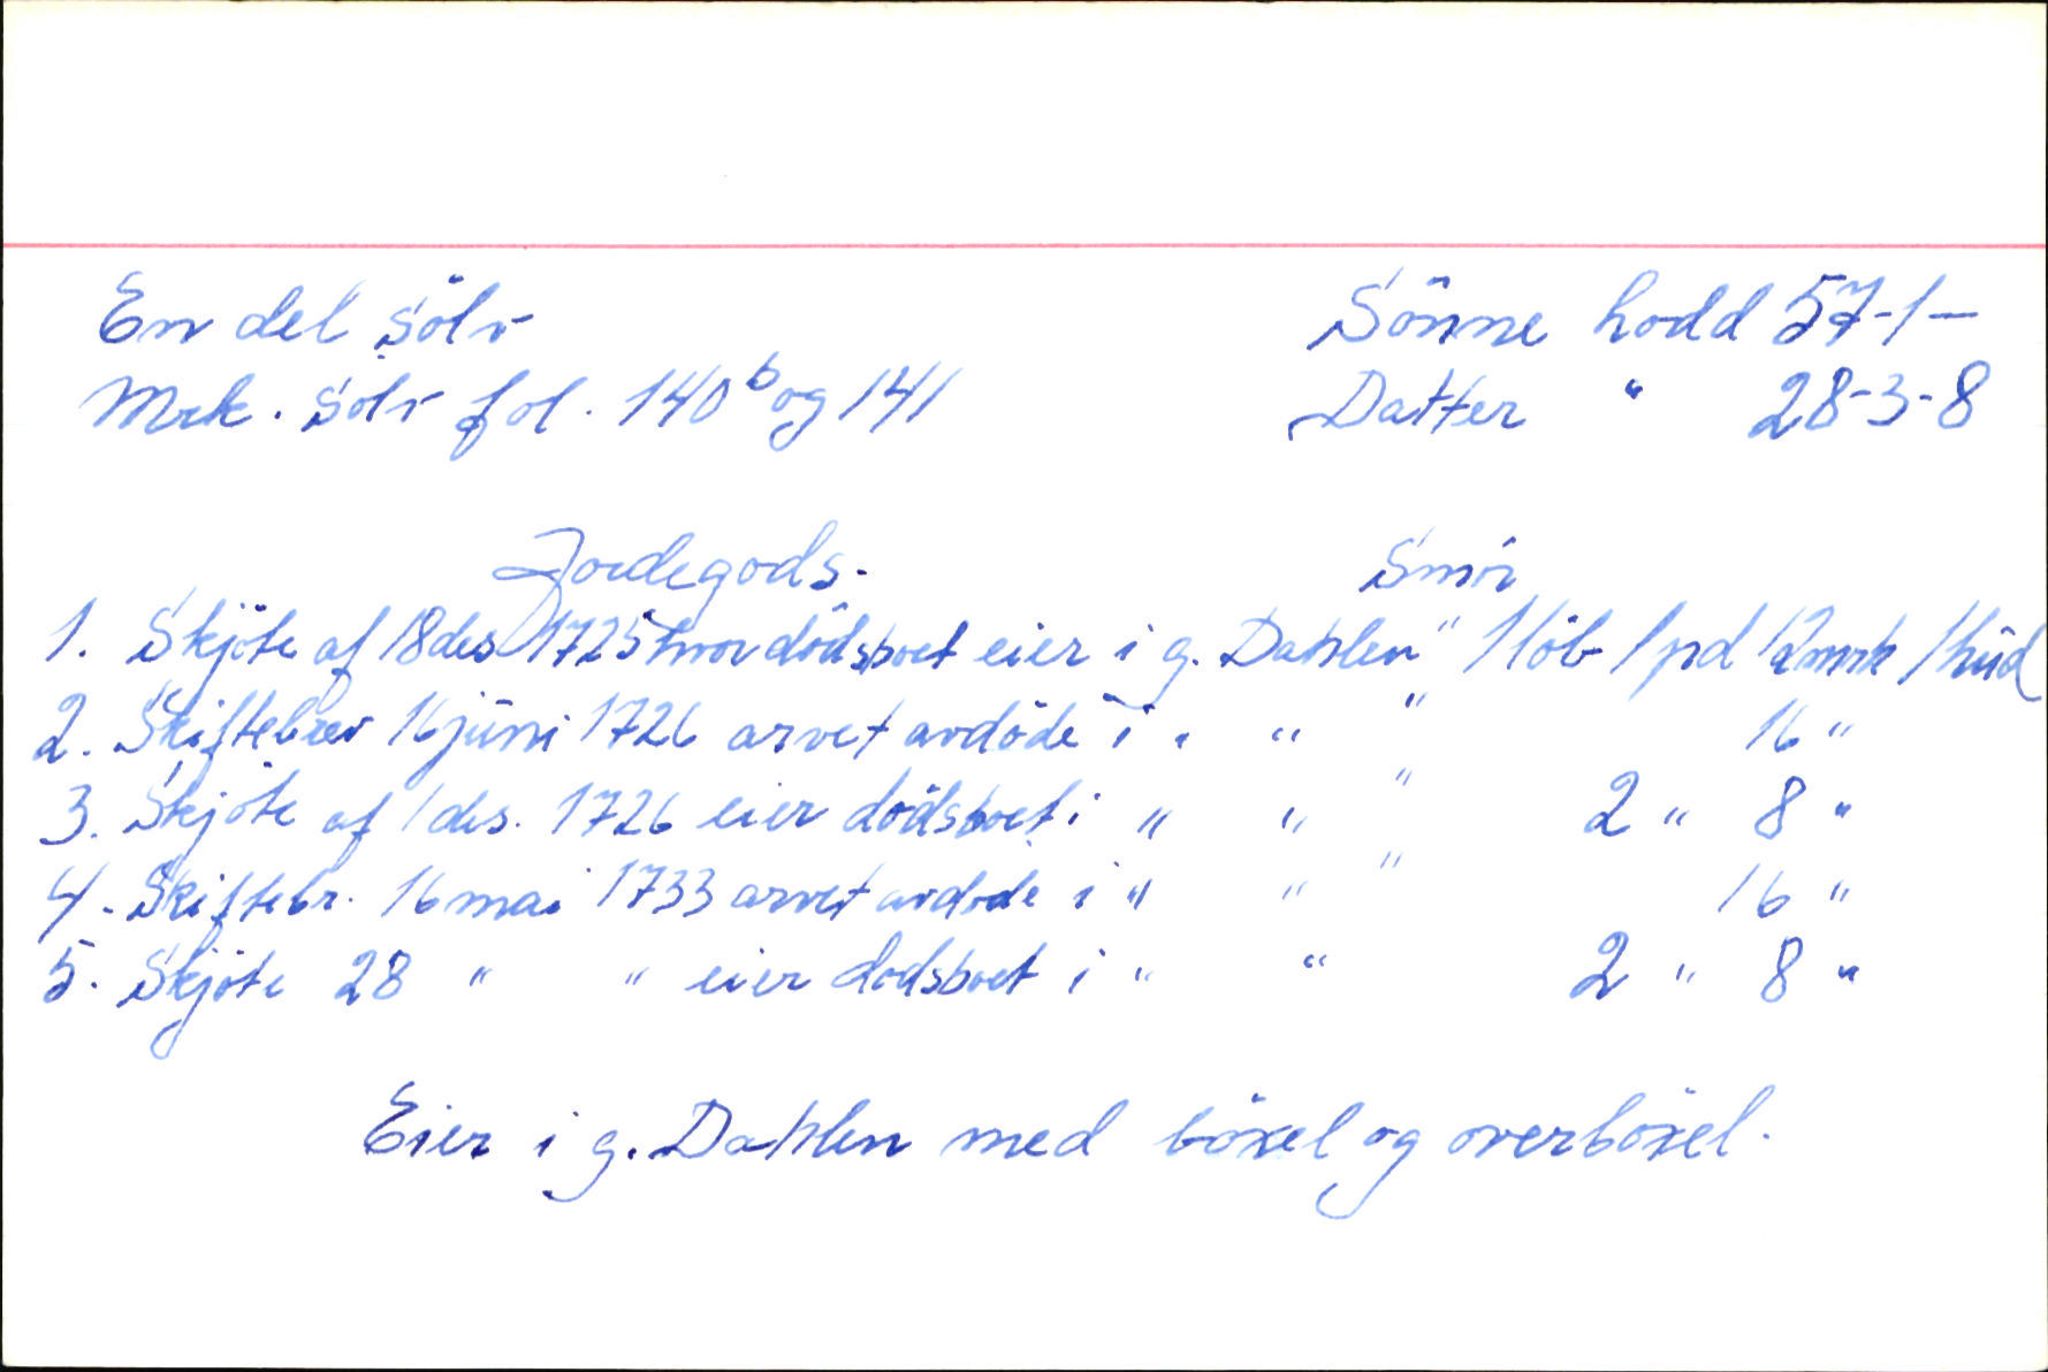 En del sölv Sönne lodd 57-1-
Mrk. sölv fol. 140 b og 141 Datter " 28-3-8
Jordegods. Smör
1. Skjöte af 18 des 1725 hvor dödsboet eier i g. Dahlen " 1 löb 1 pd 12 mrk 1 hud
2. Skiftebrev 16 juni 1726 arvet avdöde i " " " 16 "
3. Skjöte af 1 des. 1726 eier dödsboet i " " " 2 " 8 "
4. Skiftebr. 16 mai 1733 arvet avdöde i " " " 16 "
5. Skjöte 28 " " eier dodsboet i " " 2 " 8 "
Eier i g. Dahlen med böxel og overböxel.